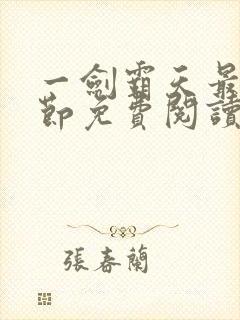 一劍霸天最
節免費閱讀
張春蘭